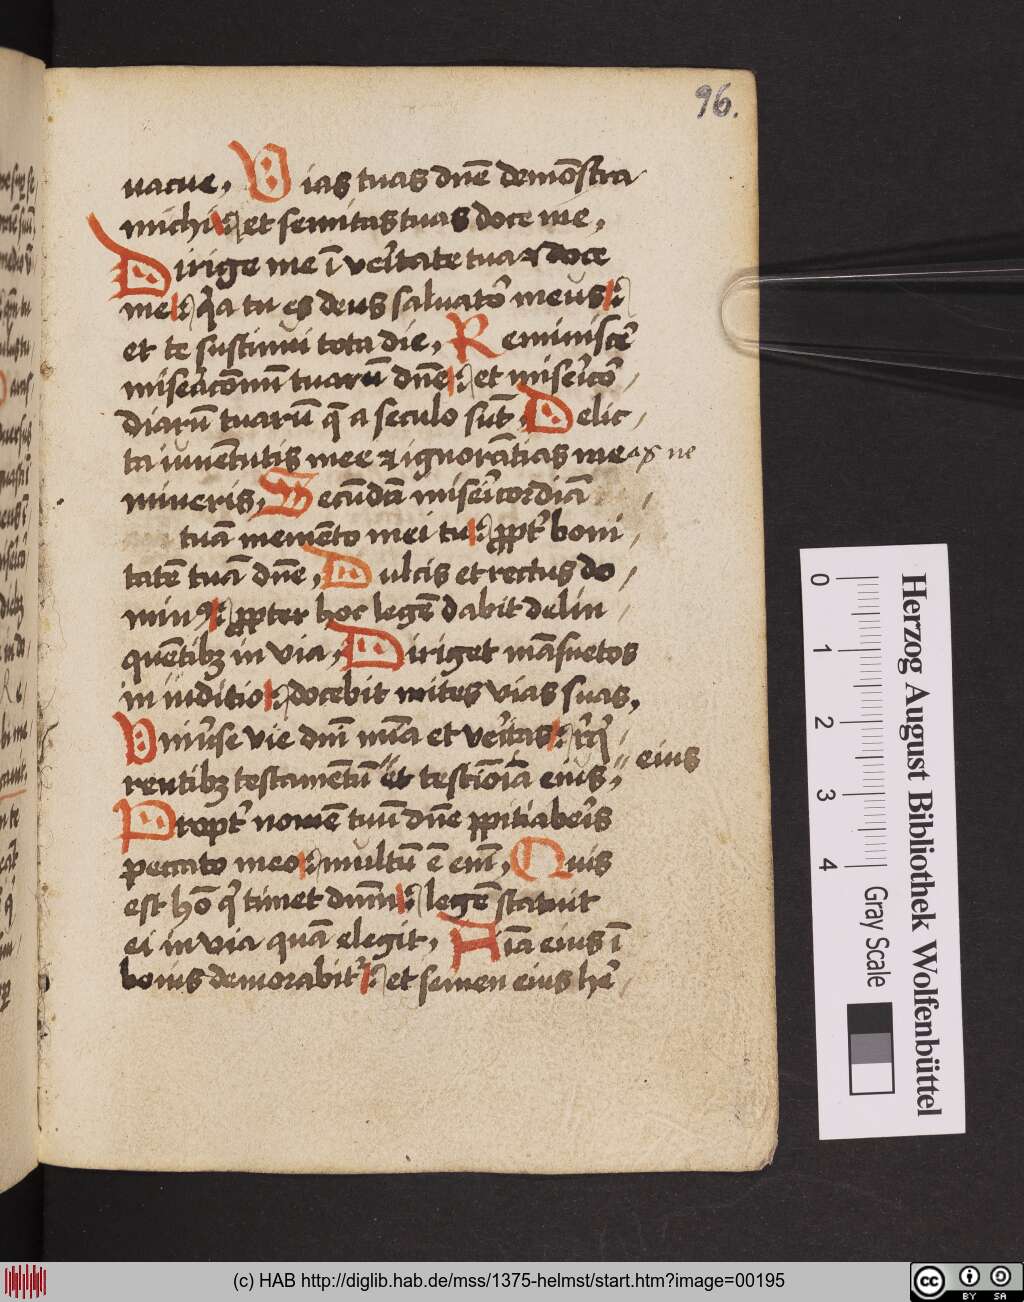 96.
uacue, Vias tuas dn̄e demōstra
michi: et semitas tuas doce me,
Dirige me ī ueritate tua & doce
me: q̄a tu es deus saluator meus:
et te sustinui tota die, Reminiscer̄
miseracōnum tuarū dn̄e: et misericor̄
diarū tuarū q̄ a seculo sūt, Delic
ta iuuētutis mee & ignorātias meas ne
mineris, Secūdā misericordiā
tuā memēto mei tu: ꝓpt' boni
tatē tuā dn̄e, Dulcis et rectus do
minꝰ: ꝓpter hoc legē dabit delin
quētibꝫ in via, Diriget māsuetos
in iuditio: docebit mites vias suas,
Vniūse vie dnī mīa et ueritas:
rentibꝫ testamētū eius et testiōia eius,
Propt' nomē tuū dn̄e ꝓpitiaberis
peccato meo: multū ē enī, Quis
est hō q̄ timet dnm̄: legē statuit
ei in via quā elegit, Aīa eius ī
bonis demorabit': et semen eius her̄
Herzog August Bibliothek Wolfenbüttel
0 1 2 3 4
Gray Scale
(c) HAB http://diglib.hab.de/mss/1375-helmst/start.htm?image=00195
cc BY SA